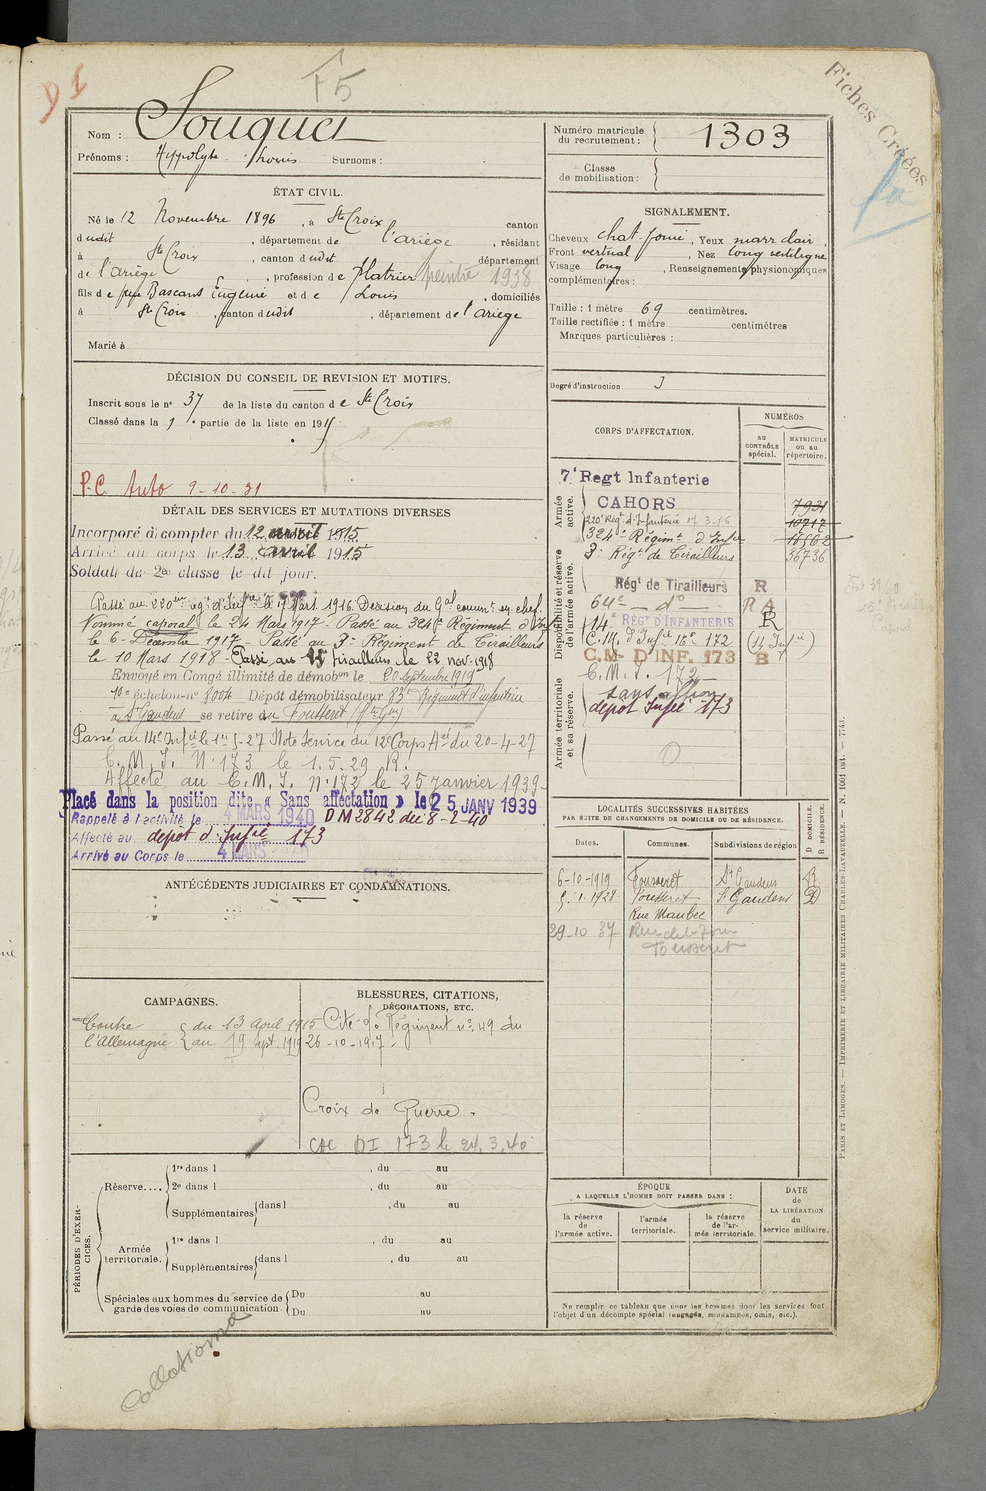 D I
F5
Fiches Créées
Nom : Souquet
Prénoms : Hippolyte Louis Surnoms :
Numéro matricule du recrutement : 1303
Classe de mobilisation :
ÉTAT CIVIL.
Né le 12 Novembre 1896, à Ste Croix canton
dudit, département de l'ariège, résidant
à Ste Croix, canton dudit département
de l'ariège, profession de Platrier peintre 1938
fils de Bascans Eugénie et de Louis, domiciliés
à Ste Croix, canton dudit, département de l'ariège
Marié à
SIGNALEMENT.
Cheveux chat. foncé, Yeux marr clair,
Front vertical, Nez long rectiligne
Visage long, Renseignements physionomiques
complémentaires :
Taille : 1 mètre 69 centimètres.
Taille rectifiée : 1 mètre centimètres
Marques particulières :
Degré d'instruction 3
DÉCISION DU CONSEIL DE REVISION ET MOTIFS.
Inscrit sous le no 37 de la liste du canton de Ste Croix
Classé dans la 1e partie de la liste en 191
P.C. Auto 9-10-31
DÉTAIL DES SERVICES ET MUTATIONS DIVERSES
Incorporé à compter du 12 avril 1915
Arrivé au corps le 13 avril 1915
Soldat de 2e classe le dit jour.
Passé au 220me Rég. d'Infrie le 17 Mars 1916. Décision du Gal commt en chef.
Nommé caporal le 24 Mars 1917. Passé au 324e Régiment d'Infie
le 6 Décembre 1917 - Passé au 3e Régiment de Tirailleurs
le 10 Mars 1918 - Passé au 15 tirailleurs le 22 nov. 1918
Envoyé en Congé illimité de démobon le 20 Septembre 1919
10e échelon no 8004 Dépôt démobilisateur 83e Régiment d'infanterie
à St Gaudens se retire au Fousseret (Hte Gne)
Passé au 14e Infie le 1er 5-27 Note Service du 12e Corps Aée du 20-4-27
C. M. I. No 173 le 1.5.29 R.
Affecté au C. M. I. No 172 le 25 Janvier 1939
Placé dans la position dite « Sans affectation » le 25 JANV 1939
Rappelé à l'activité le 4 MARS 1940 D M 2842 du 8-2-40
Affecté au dépôt d'Infie 173
Arrivé au Corps le 4 MARS
CORPS D'AFFECTATION.
NUMÉROS
au CONTRÔLE spécial.
MATRICULE ou au répertoire.
Armée active.
7e Regt Infanterie
CAHORS 7931
220e Régt d'Infanterie 17 3-16 10717
324e Régimt d'Infie 18562
3e Régt de Tirailleurs 36736
Disponibilité et réserve de l'armée active.
Régt de Tirailleurs R
64e - do - R A
14e RÉGt D'INFANTERIE R
C.M. d'Infie No 172 (14 Infie)
C.M- D'INF. 173 B
C. M. I. 172
Armée territoriale et sa réserve.
sans affion
dépôt Infie 173
LOCALITÉS SUCCESSIVES HABITÉES
PAR SUITE DE CHANGEMENTS DE DOMICILE OU DE RÉSIDENCE.
Dates. Communes. Subdivisions de région
D DOMICILE. R RÉSIDENCE.
6-10-1919 Fousseret St Gaudens R
5.1.1928 Fousseret St Gaudens D
Rue Maubec
29-10 37
Fousseret
ANTÉCÉDENTS JUDICIAIRES ET CONDAMNATIONS.
CAMPAGNES.
Contre l'Allemagne { du 13 Avril 1915
au 19 Sept. 1919
BLESSURES, CITATIONS,
DÉCORATIONS, ETC.
Cité o/. Régiment no 49 du
26-10-1917
Croix de Guerre.
CAC DI 173 le 24.3.40
PÉRIODES D'EXERCICES.
Réserve.... 1re dans l , du au
2e dans l , du au
Supplémentaires dans l , du au
Armée territoriale. 1re dans l , du au
Supplémentaires dans l , du au
Spéciales aux hommes du service de garde des voies de communication { Du au
Du au
ÉPOQUE
A LAQUELLE L'HOMME DOIT PASSER DANS :
la réserve de l'armée active.
l'armée territoriale.
la réserve de l'armée territoriale.
DATE de LA LIBÉRATION du service militaire.
Ne remplir ce tableau que pour les hommes dont les services font
l'objet d'un décompte spécial (engagés, condamnés, omis, etc.).
PARIS ET LIMOGES. — IMPRIMERIE ET LIBRAIRIE MILITAIRES CHARLES-LAVAUZELLE. — N. 1001 bat. — 7743.
Collationné